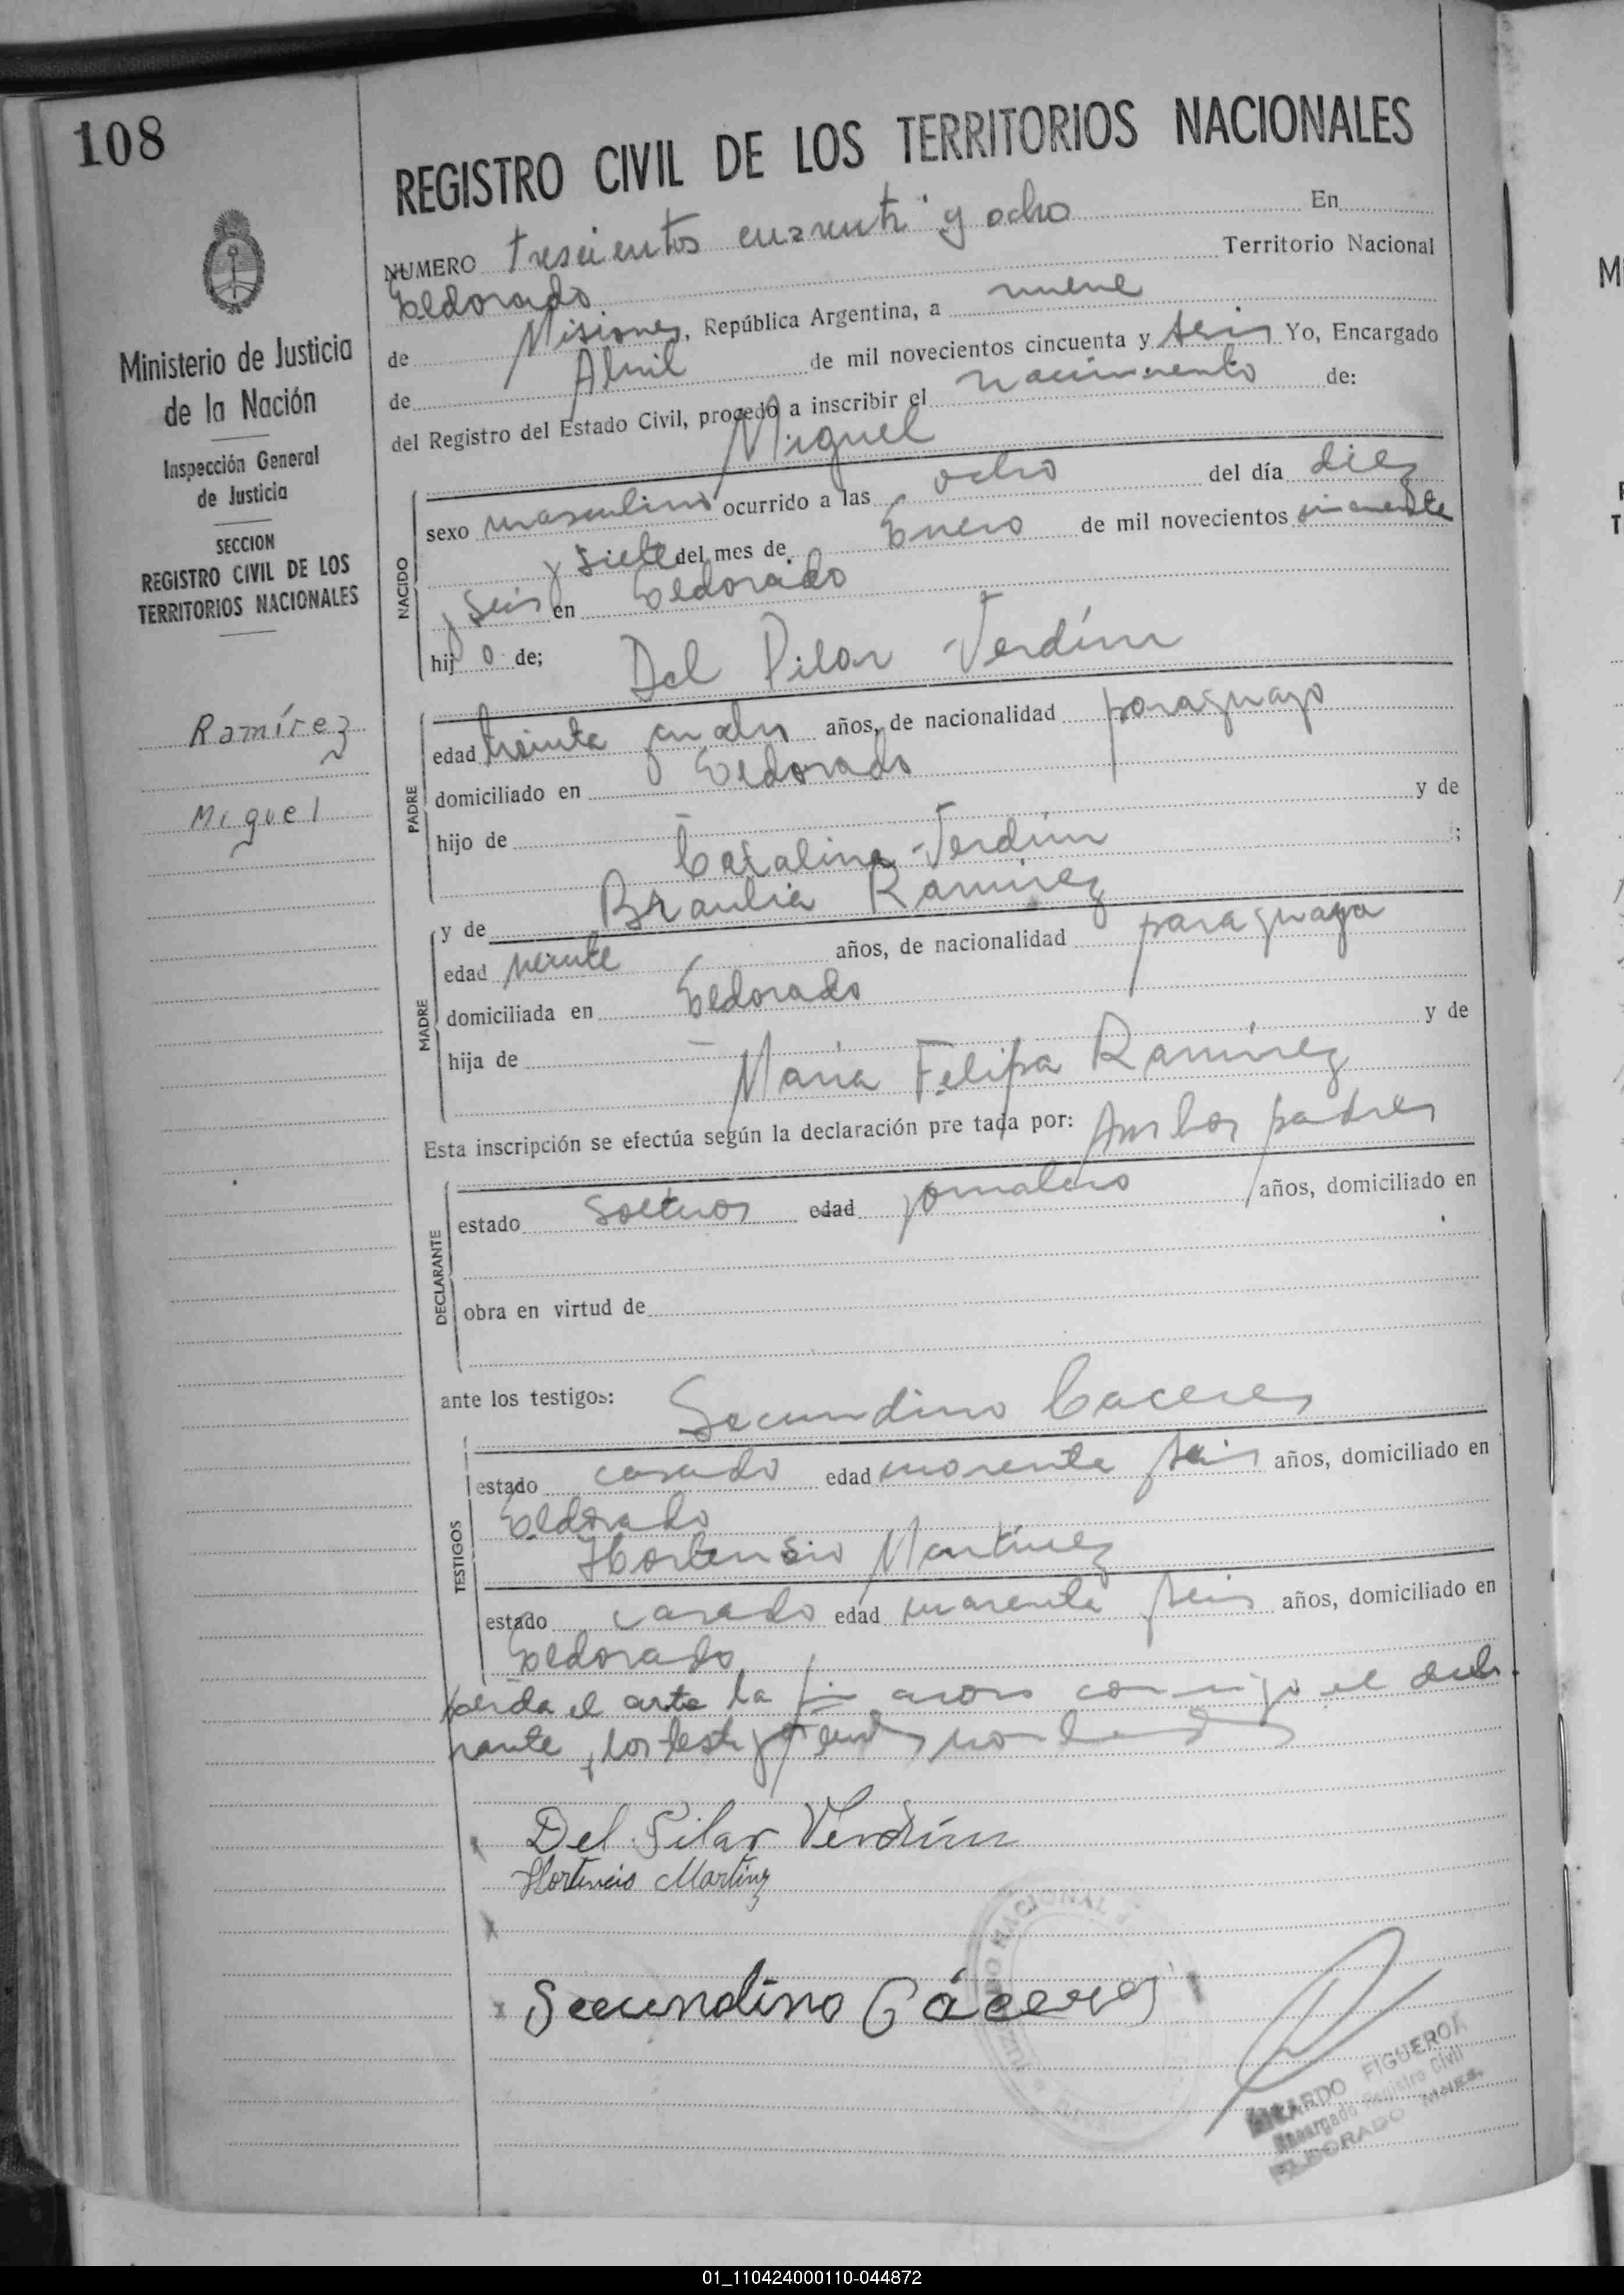 108
REGISTRO CIVIL DE LOS TERRITORIOS NACIONALES
NUMERO trescientos cuarenta y ocho En
Eldorado Territorio Nacional
de Misiones, República Argentina, a nueve
de Abril de mil novecientos cincuenta y seis Yo, Encargado
del Registro del Estado Civil, procedo a inscribir el nacimiento de:
Miguel
Ministerio de Justicia
de la Nación
Inspección General
de Justicia
SECCION
REGISTRO CIVIL DE LOS
TERRITORIOS NACIONALES
Ramírez
Miguel
NACIDO
sexo masculino ocurrido a las ocho del día diez
y siete del mes de Enero de mil novecientos cincuenta
y seis en Eldorado
hijo de; Del Pilar Verdún
PADRE
edad treinta años, de nacionalidad paraguayo
domiciliado en Eldorado
hijo de — y de
Catalina Verdún ;
y de Braulia Ramírez
MADRE
edad veinte años, de nacionalidad paraguaya
domiciliada en Eldorado
hija de — y de
María Felipa Ramírez
Esta inscripción se efectúa según la declaración pre tada por: Ambos padres
DECLARANTE
estado solteros edad jornalero años, domiciliado en
obra en virtud de
ante los testigos: Secundino Caceres
TESTIGOS
estado casado edad cuarenta seis años, domiciliado en
Eldorado
Hortensio Martínez
estado casado edad cuarenta seis años, domiciliado en
Eldorado
el acta la conmigo el
Del Pilar Verdún
Hortencio Martinez
Secundino Cáceres
FIGUEROA
Encargado Registro Civil
ELDORADO MNES.
01_110424000110-044872